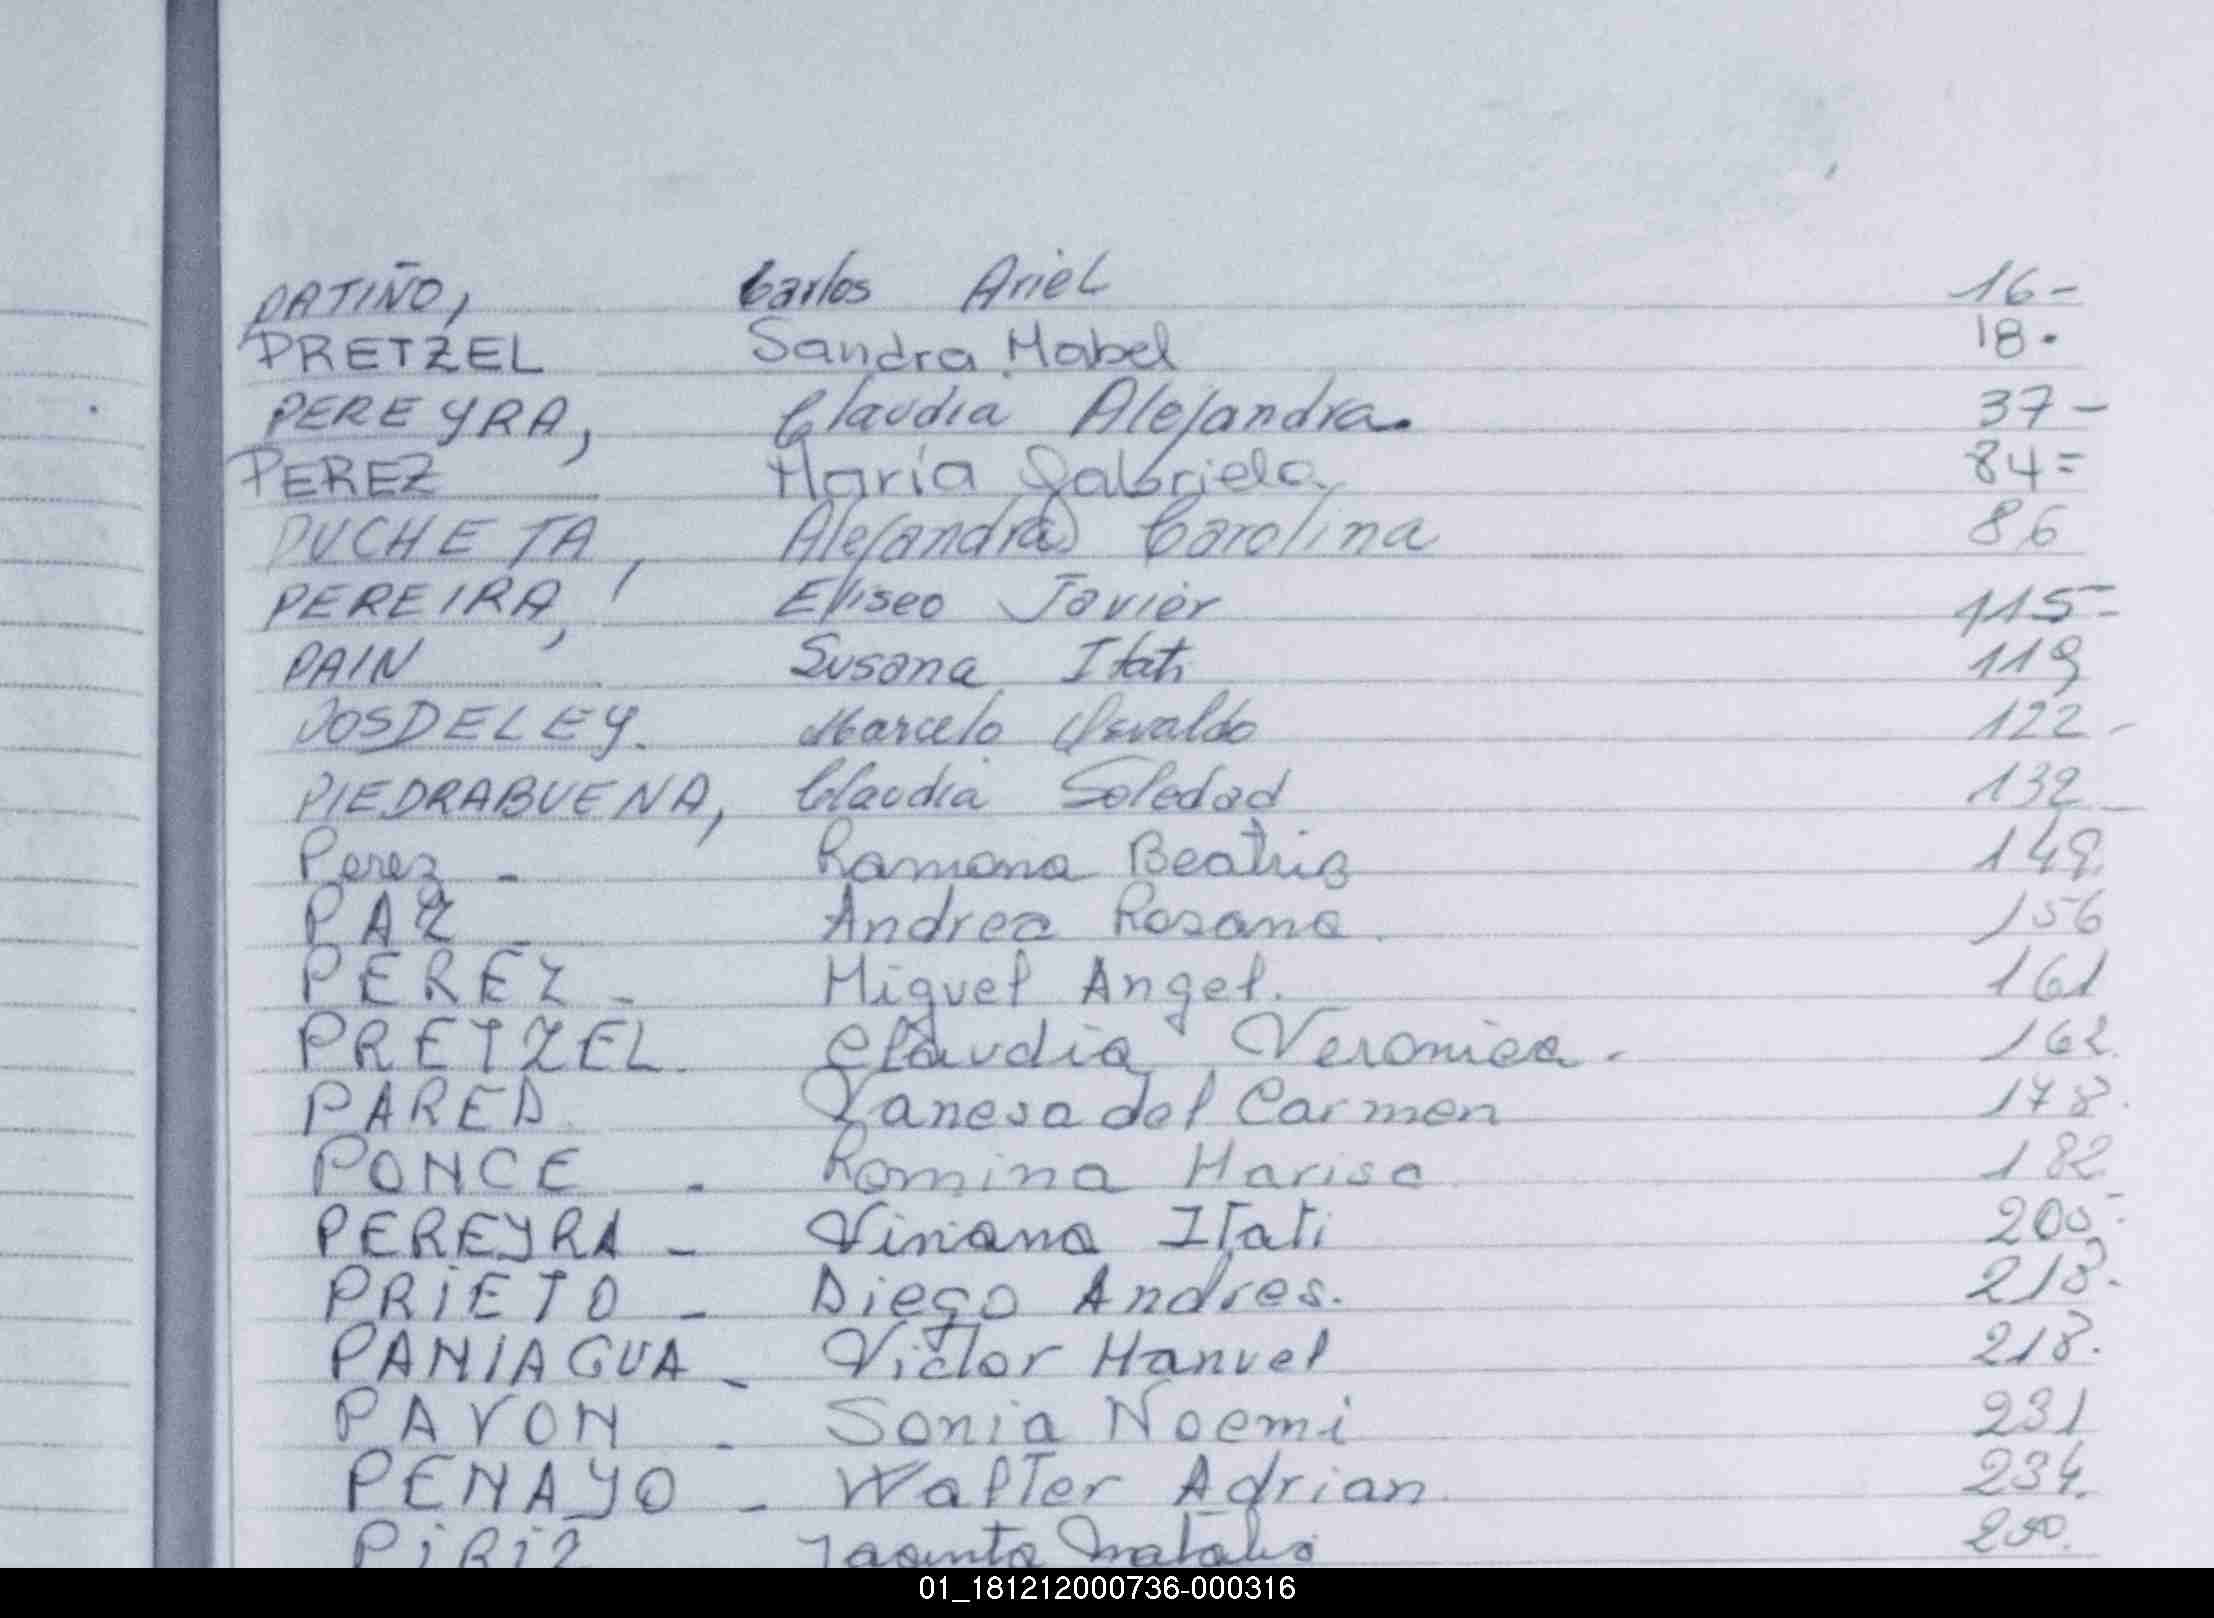 PATIÑO, Carlos Ariel 16-
PRETZEL Sandra Mabel 18.
PEREYRA, Claudia Alejandra. 37-
PEREZ María Gabriela 84=
PUCHETA, Alejandra Carolina 86
PEREIRA, Eliseo Javier 115-
PAIN Susana Itati 119
POSDELEY. Marcelo Osvaldo 122-
PIEDRABUENA, Claudia Soledad 132-
Perez - Ramona Beatriz 149.
PAZ - Andrea Rosana. 156
PEREZ - Miguel Angel. 161
PRETZEL. Claudia Veronica. 162.
PARED. Vanesa del Carmen 178.
PONCE - Romina Marisa 182
PEREYRA - Viviana Itati 200-
PRIETO - Diego Andres. 218.
PANIAGUA - Victor Manuel 218.
PAVON - Sonia Noemi 231
PENAYO - Walter Adrian 234.
PiRiZ Jacinto
01_181212000736-000316